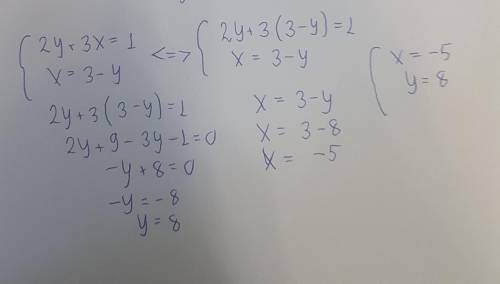 2y + 3x = 1 <=> 2y + 3(3-y) = 1
x = 3-y
x = 3-y
2y + 3(3-y) = 1
2y + 9 - 3y - 1 = 0
-y + 8 = 0
-y = -8
y = 8
x = 3-y
x = 3-8
x = -5
x = -5
y = 8